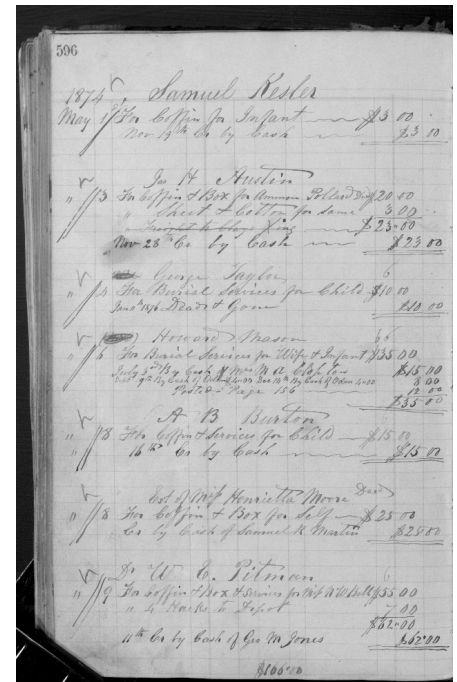 596
1874 Samuel Kesler
May 1st For Coffin for Infant $3 00
Nov 19th Cr by Cash $3 00
Jas H Austin
" 3 For Coffin & Box for Pollard Decd $20 00
" Sheet & Cotton for Same 3 00
Freight to $23.00
Nov 28th Cr by Cash $23 00
George Taylor 6
" 4 For Burial Services for Child $10 00
Jany 1876 Dead & Gone $10 00
Howard Mason 66
" 6 For Burial Services for Wife & Infant $35 00
July 3rd By Cash of Mrs M A $15 00
9th By Cash of 4.00 Dec 14th By Cash of 4.00 8 00
Posted Page 156 12 00
$35 00
A B Burton
" 8 For Coffin & Services for Child $15 00
" 16th Cr by Cash $15 00
Est of Miss Henrietta Moore Decd
" 8 For Coffin & Box for Self $25 00
Cr by Cash of Samuel R Martin $25 00
Dr W C Pitman 6
" 9 For Coffin & Box & Services for W Bell $55 00
" 4 Hacks to Depot 7 00
$62 00
11th Cr by Cash of Geo M Jones $62 00
$166.00